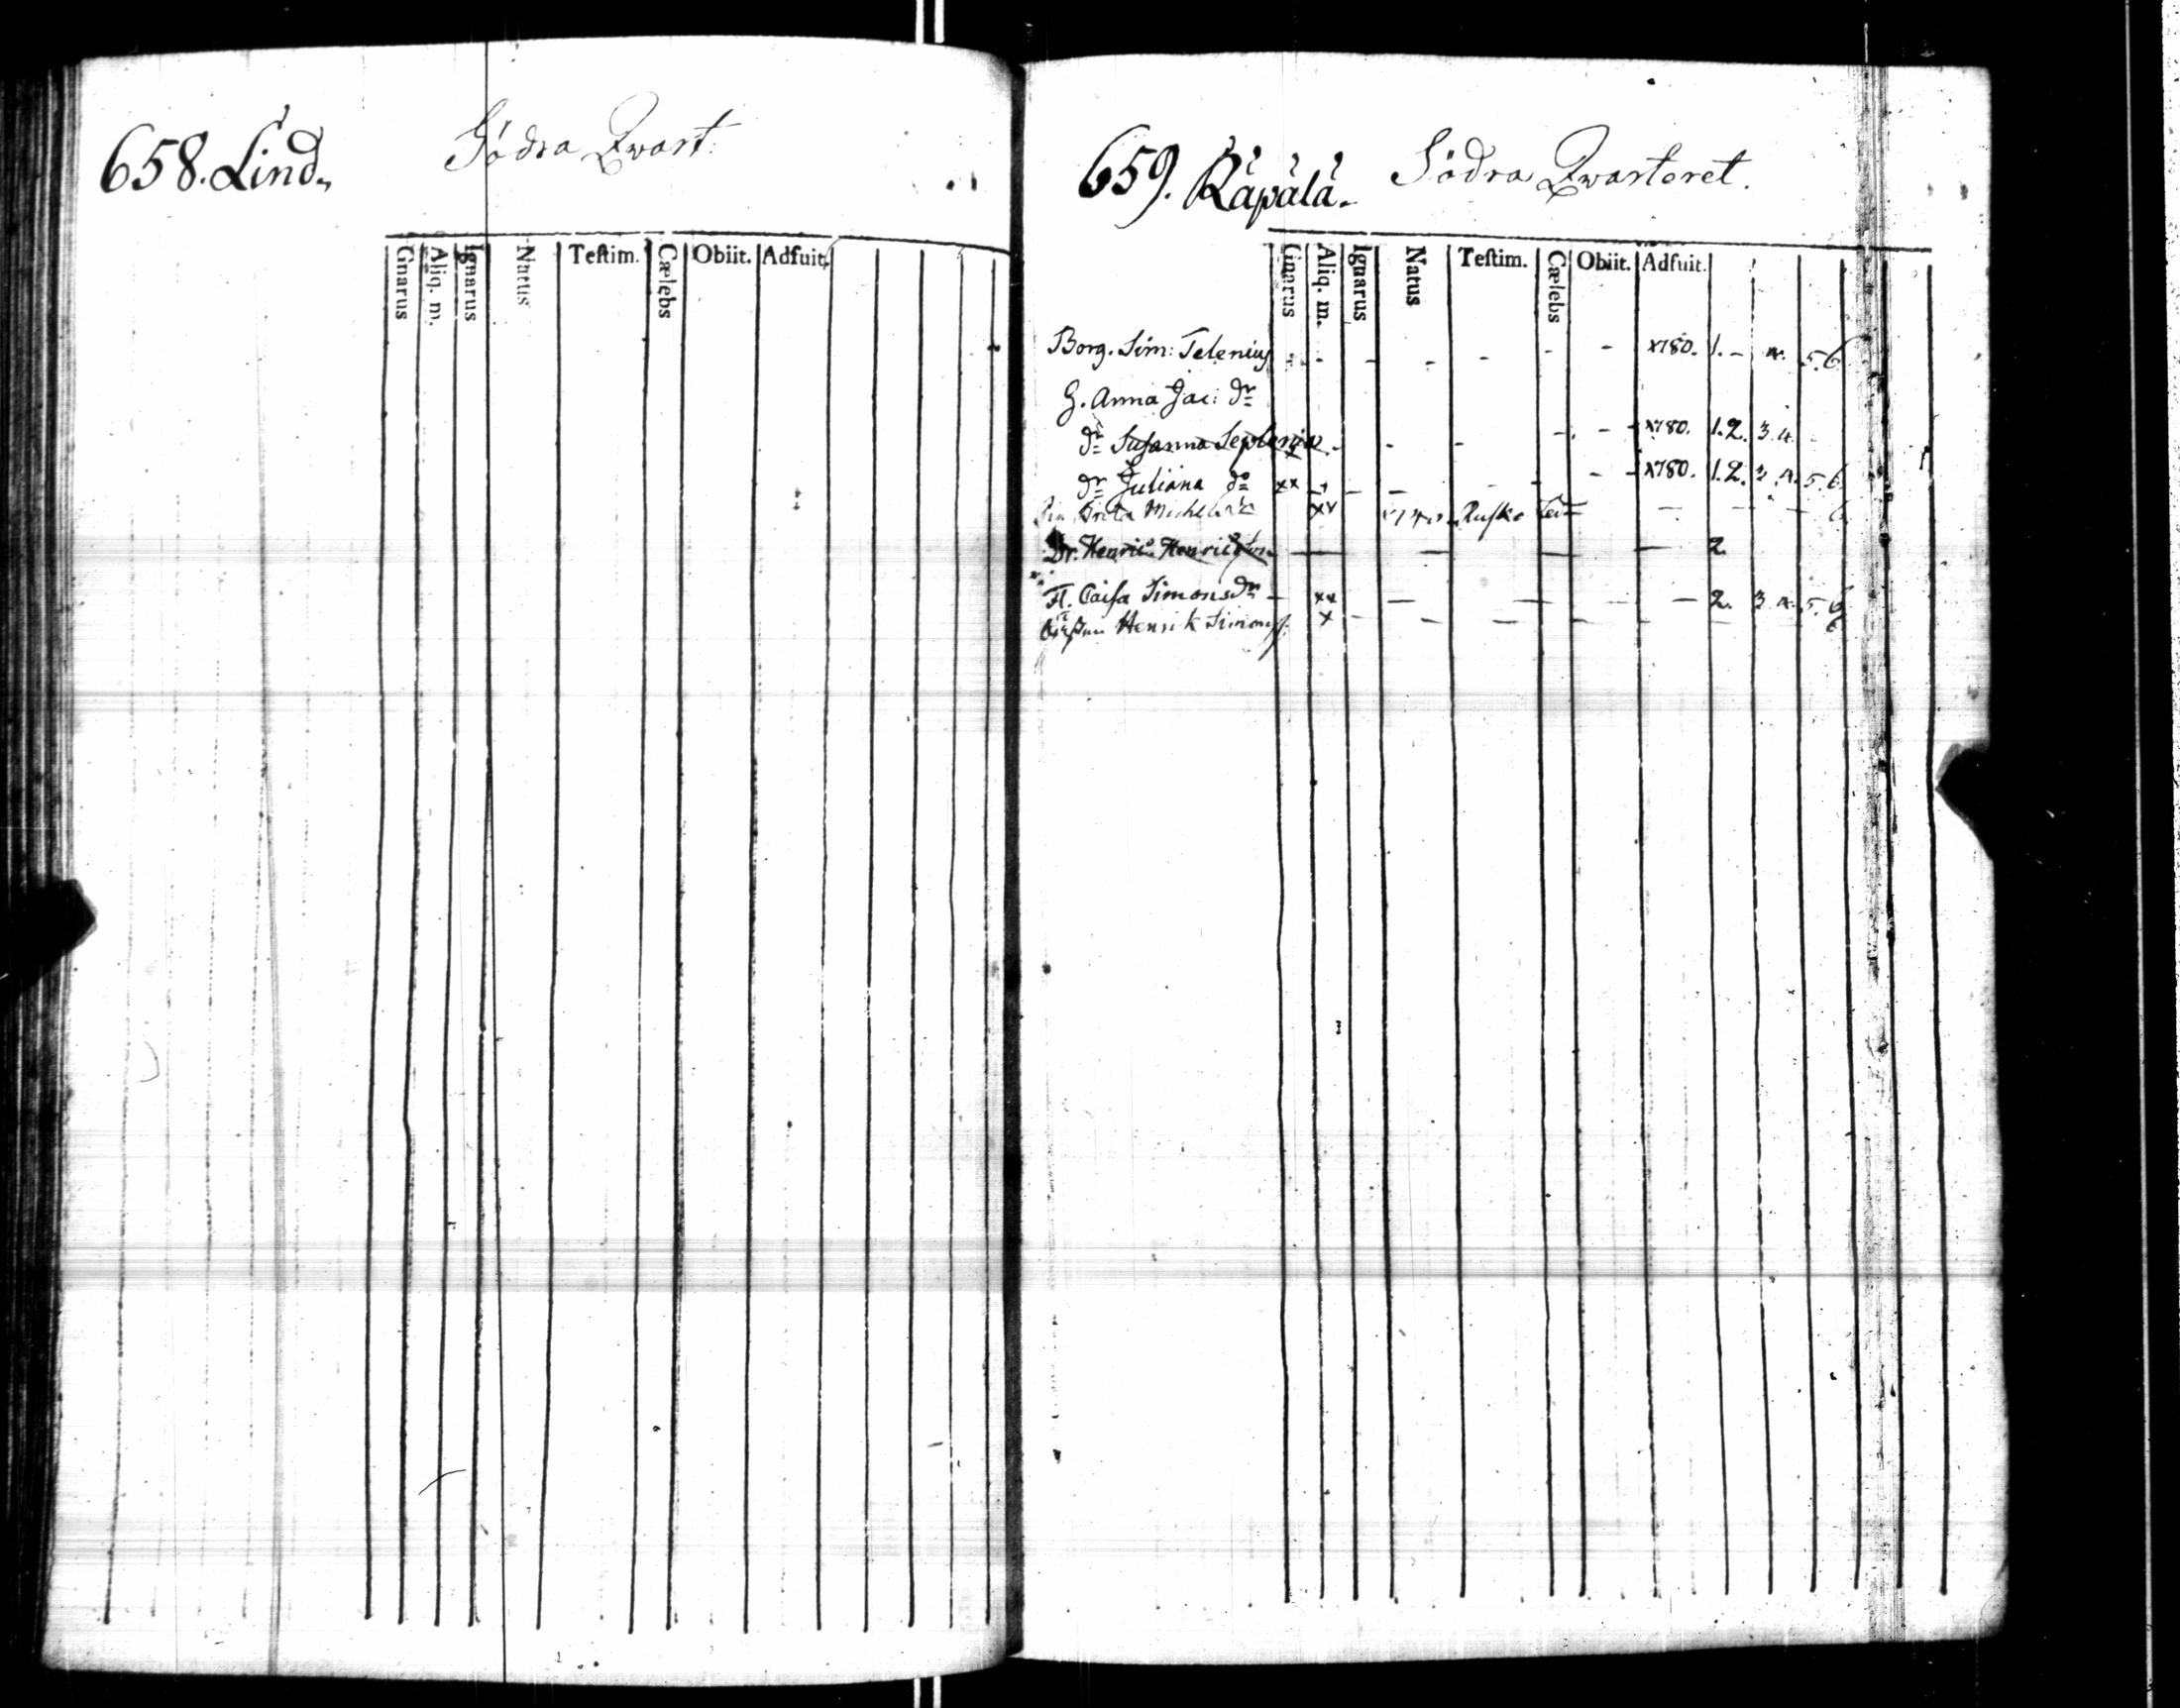 658. Lind. Södra Qwart:
Gnarus Aliq. m. Ignarus Natus Testim. Cælebs Obiit. Adfuit.
659. Räpälä. Södra Qwarteret.
Gnarus Aliq. m. Ignarus Natus Testim. Cælebs Obiit. Adfuit.
Borg. Sim: Selenius - - - - - - - 1780. 1. - 4. 5. 6
H. Anna Jac: dr
dr Susanna - - - - - 1780. 1. 2. 3. 4.
dr Juliana do xx - - - - - - 1780. 1. 2. 3. 4. 5. 6
Brita Michels dr xx Rusko - - - 6
Dr. Henric Henricsson — — — — 2.
Fl. Caisa Simonsdr - xx — — — — 2. 3. 4. 5. 6
Henrik Simons x - - - - - - - - 6